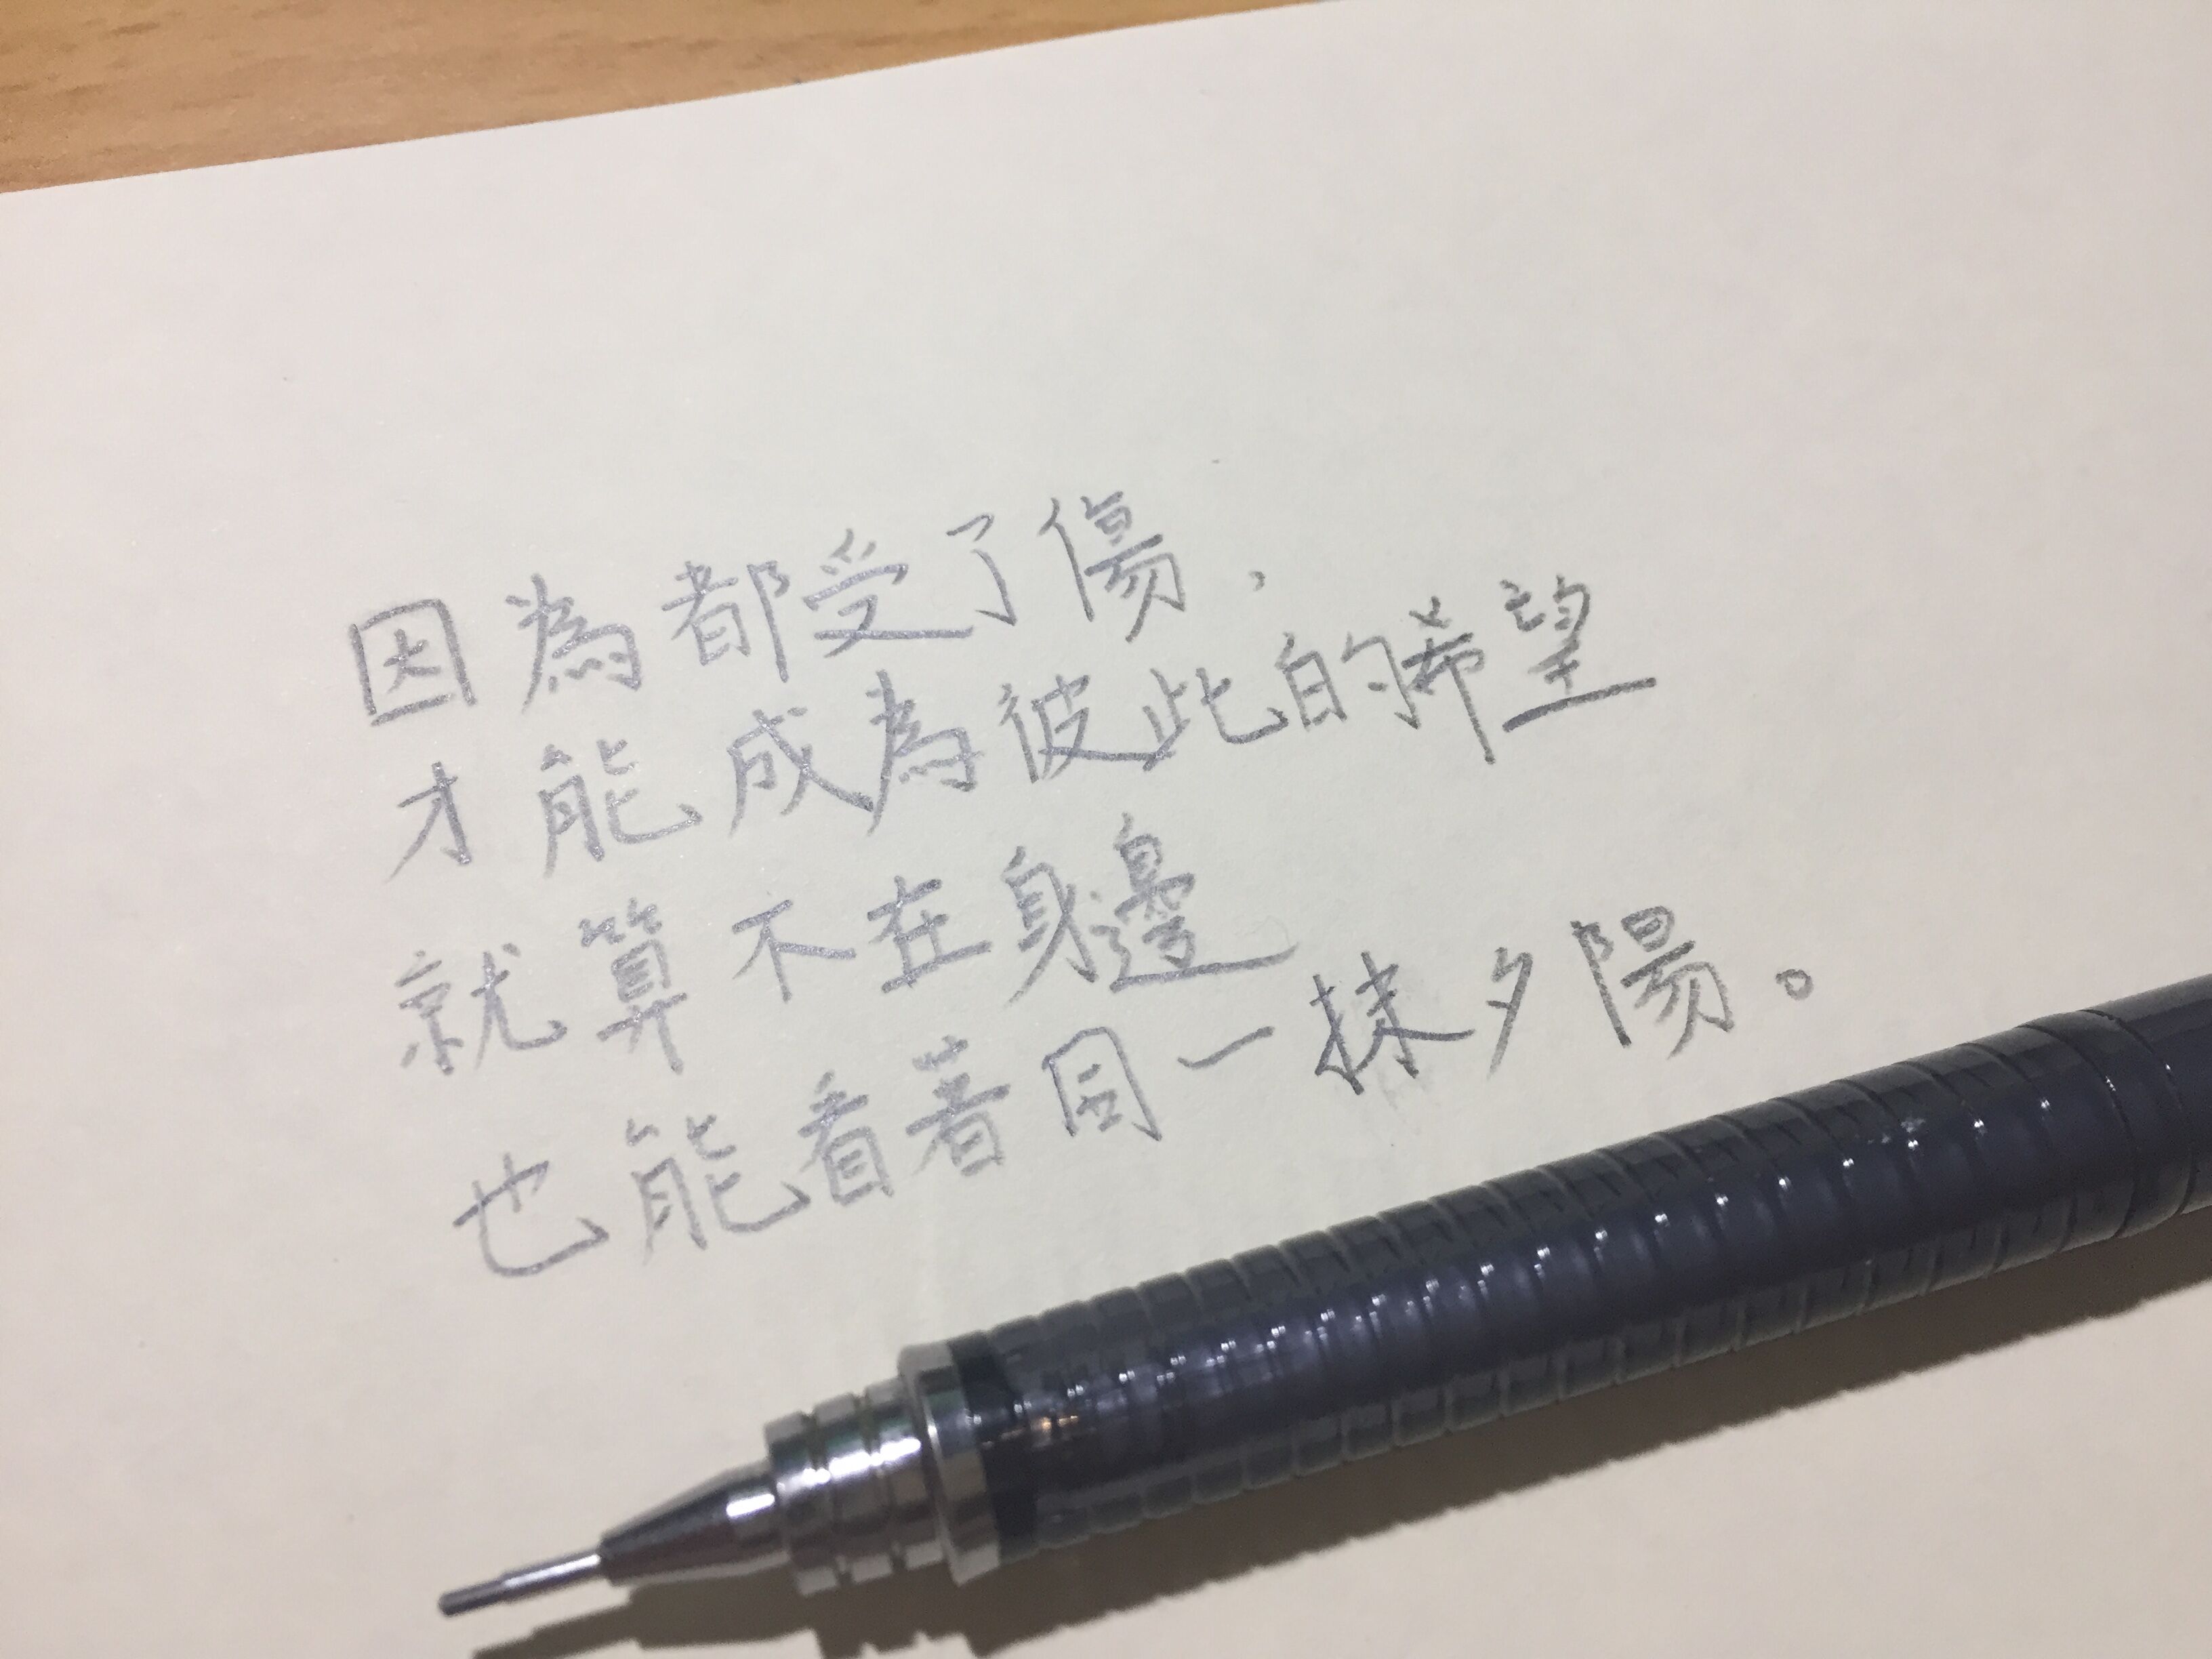 因為都受了傷，
才能成為彼此的希望
就算不在身邊
也能看著同一抹夕陽。